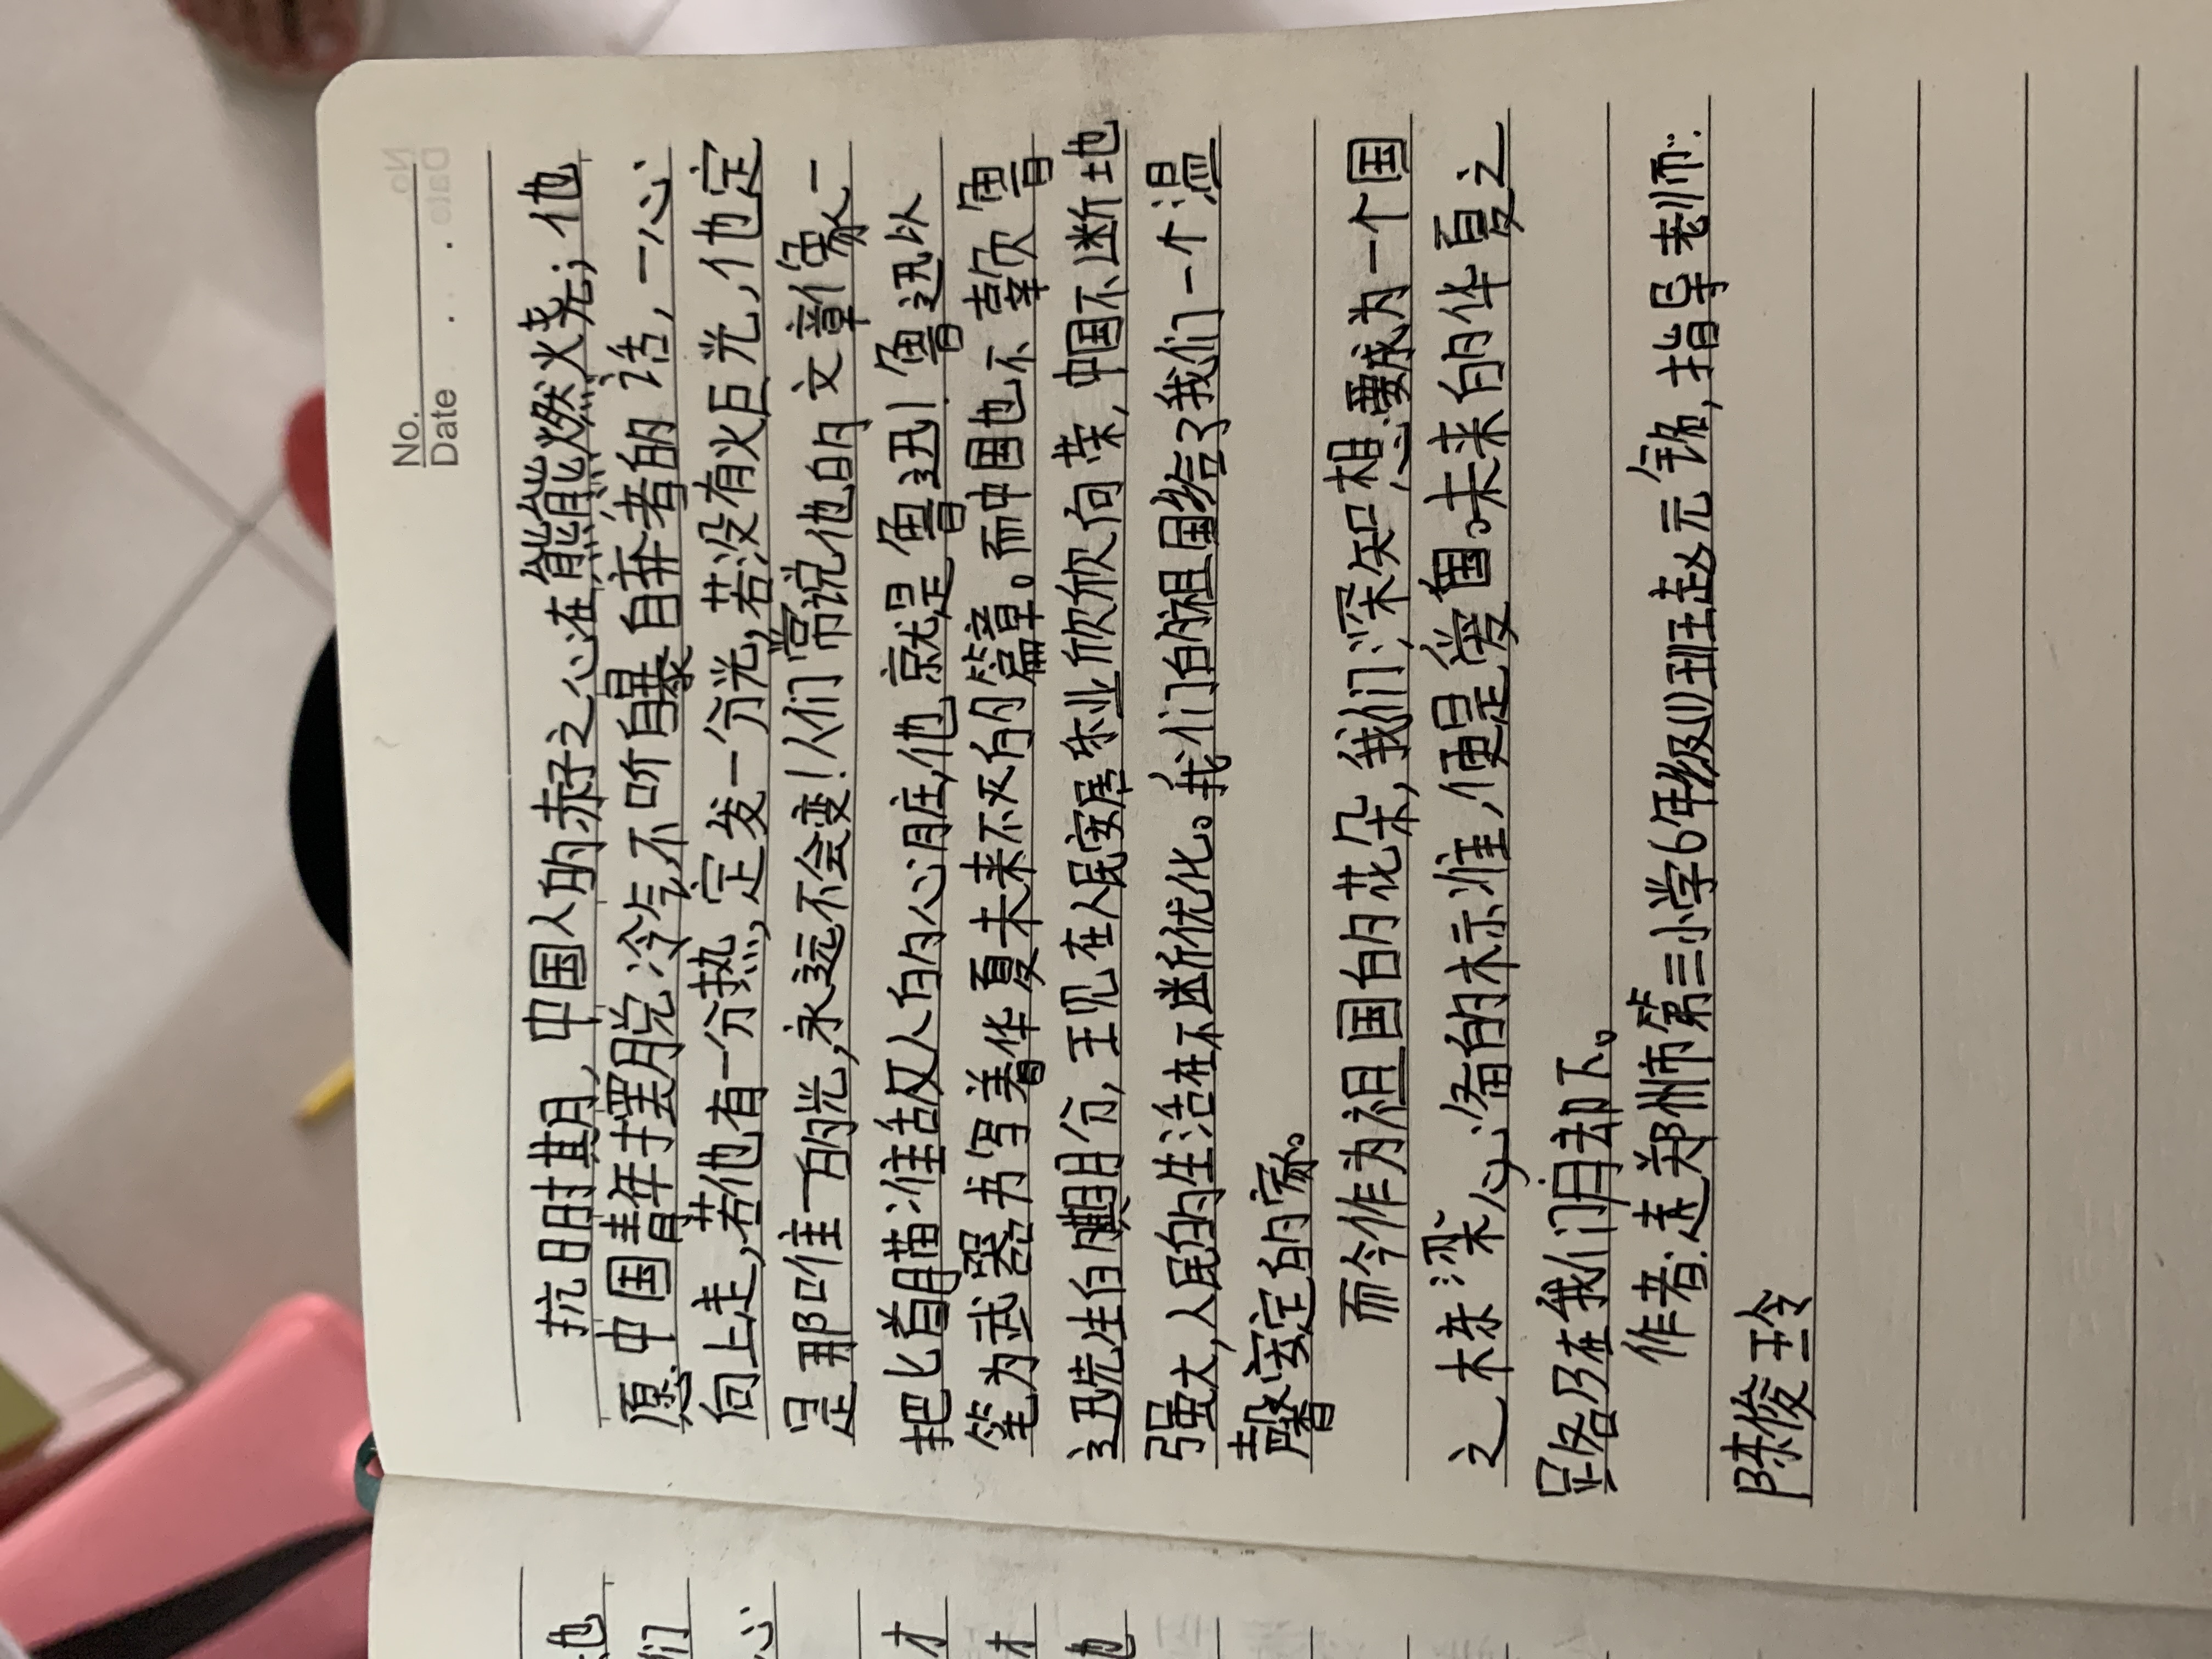 No.
Date
抗日时期,中国人的赤子之心在熊熊燃烧;他
愿中国青年摆脱冷气不听自暴自弃者的话,一心
向上走,若他有一分热,定发一分光,若没有炬光,他定
是那唯一的光,永远不会变!人们常说他的文章像一
把匕首瞄准敌人的心脏,他就是鲁迅!鲁迅以
笔为武器书写着华夏未来不的篇章。而中国也不辜鲁
迅先生的期,现在人民安居乐业欣欣向荣,中国不断地
强大,人民的生活在不断优化。我们的祖国给了我们一个温
馨安定的家。
而今作为祖国的花朵,我们深知想要成为一个国
之栋梁必备的标准,便是爱国。未来的华夏之
路仍在我们脚下。
作者:连郑州市第三小学6年级(1)班赵元铭,指导老师:
陈俊玲